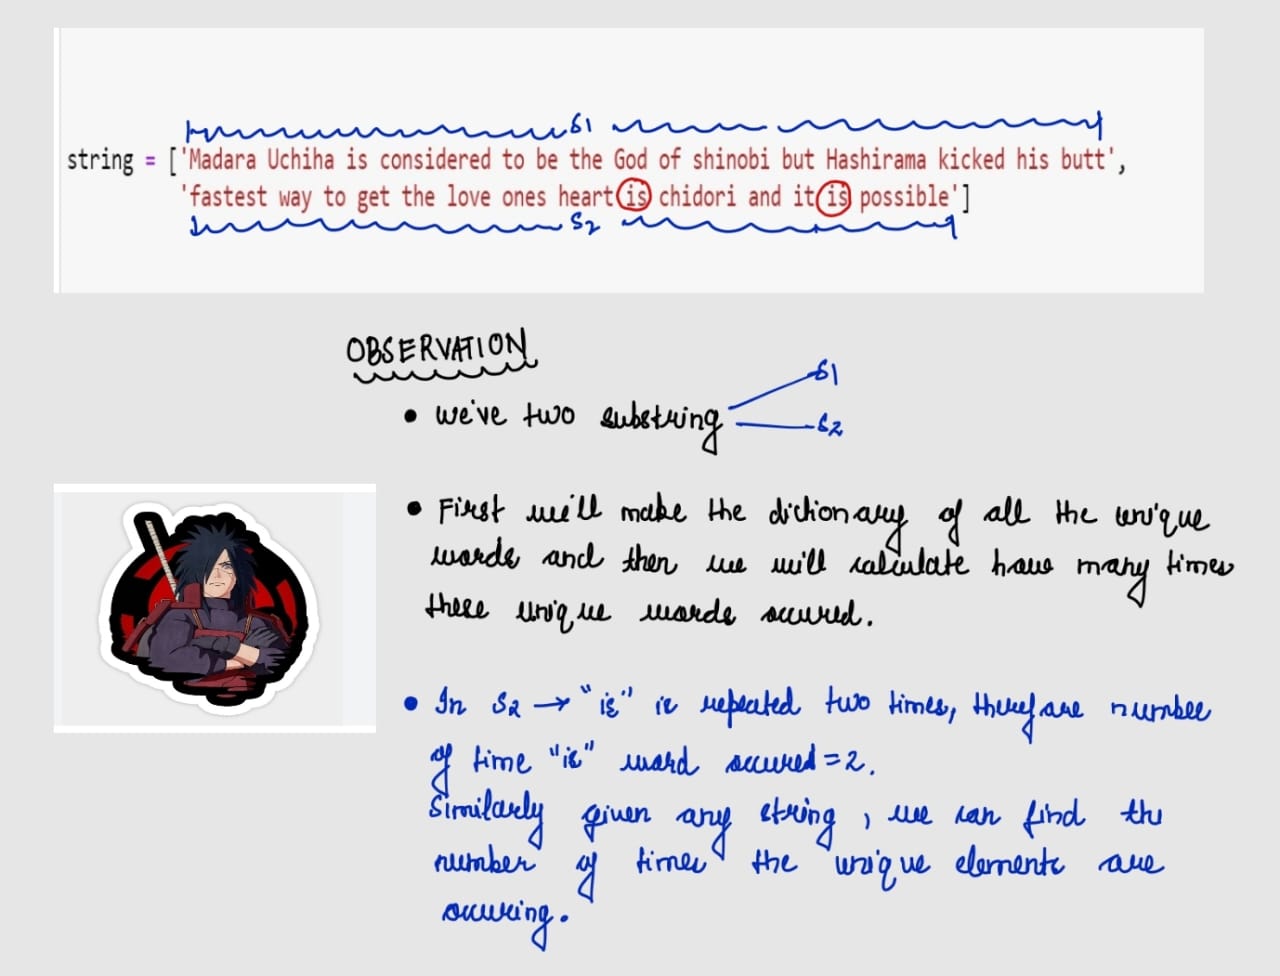 S1
string = ['Madara Uchiha is considered to be the God of shinobi but Hashirama kicked his butt',
'fastest way to get the love ones heart is chidori and it is possible']
S2
OBSERVATION
• we've two substring
S1
S2
• First we'll make the dictionary of all the unique
words and then we will calculate how many times
these unique words occured.
• In S2 → "is" is repeated two times, therefore number
of time "is" word occured = 2.
Similarly given any string, we can find the
number of times the unique elements are
occuring.